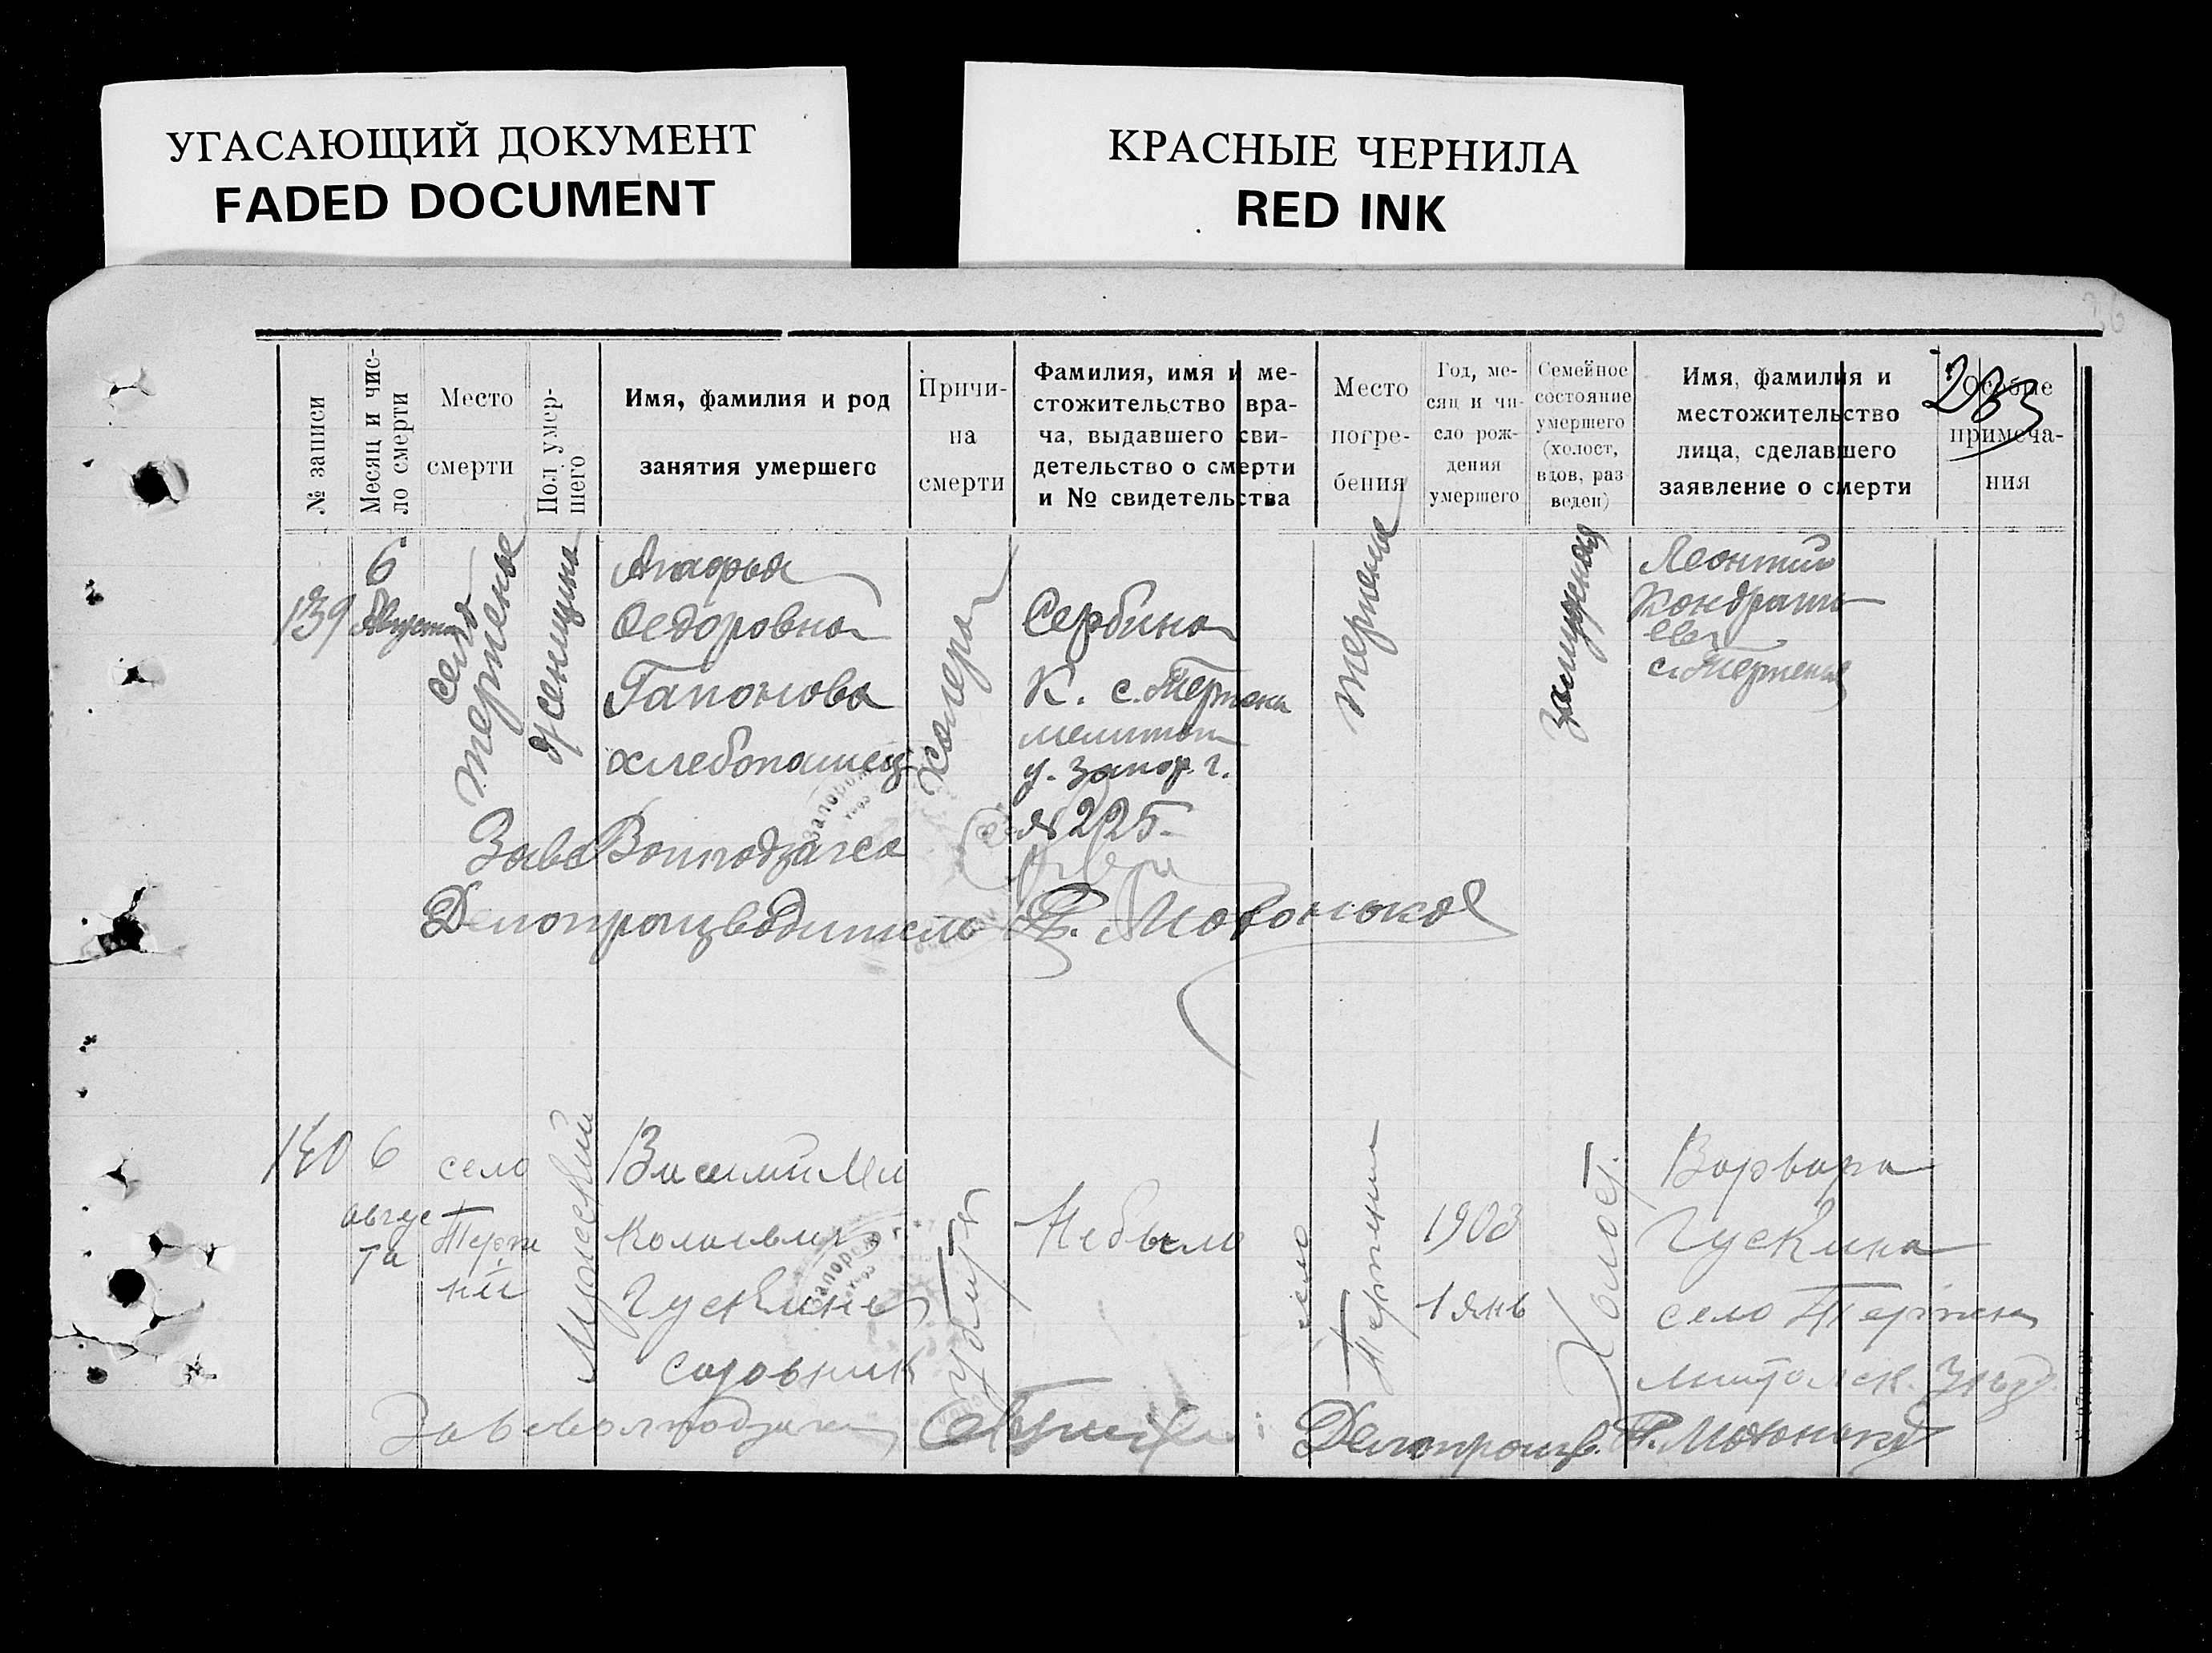 УГАСАЮЩИЙ ДОКУМЕНТ
FADED DOCUMENT
КРАСНЫЕ ЧЕРНИЛА
RED INK
№ записи
Месяц и чис-
ло смерти
Место
смерти
Пол умер-
шего
Имя, фамилия и род
занятия умершего
Причи-
на
смерти
Фамилия, имя и ме-
стожительство вра-
ча, выдавшего сви-
детельство о смерти
и № свидетельства
Место
погре-
бения
Год, ме-
сяц и чи-
сло рож-
дения
умершего
Семейное
состояние
умершего
(холост,
вдов, раз
веден)
Имя, фамилия и
местожительство
лица, сделавшего
заявление о смерти
Особые
примеча-
ния
139
6
Августа
село
Терпенье
женщина
Агафья
Федоровна
Гапонова
хлебопашец
холера
Сербина
К. с. Терпени
мелитоп
у. запор. г.
№ 225
Терпение
замужняя
Леонтий
Кондрать
ев
с. Терпение
Делопроизводитель
140
6
авгус
та
село
Терпе
ний
Мужской
Василий Ни
колаевич
Гускин
садовник
убит
Не было
село
Терпение
1903
1 янв
Холост.
Варвара
Гускина
село Терпени
Делопроизв.